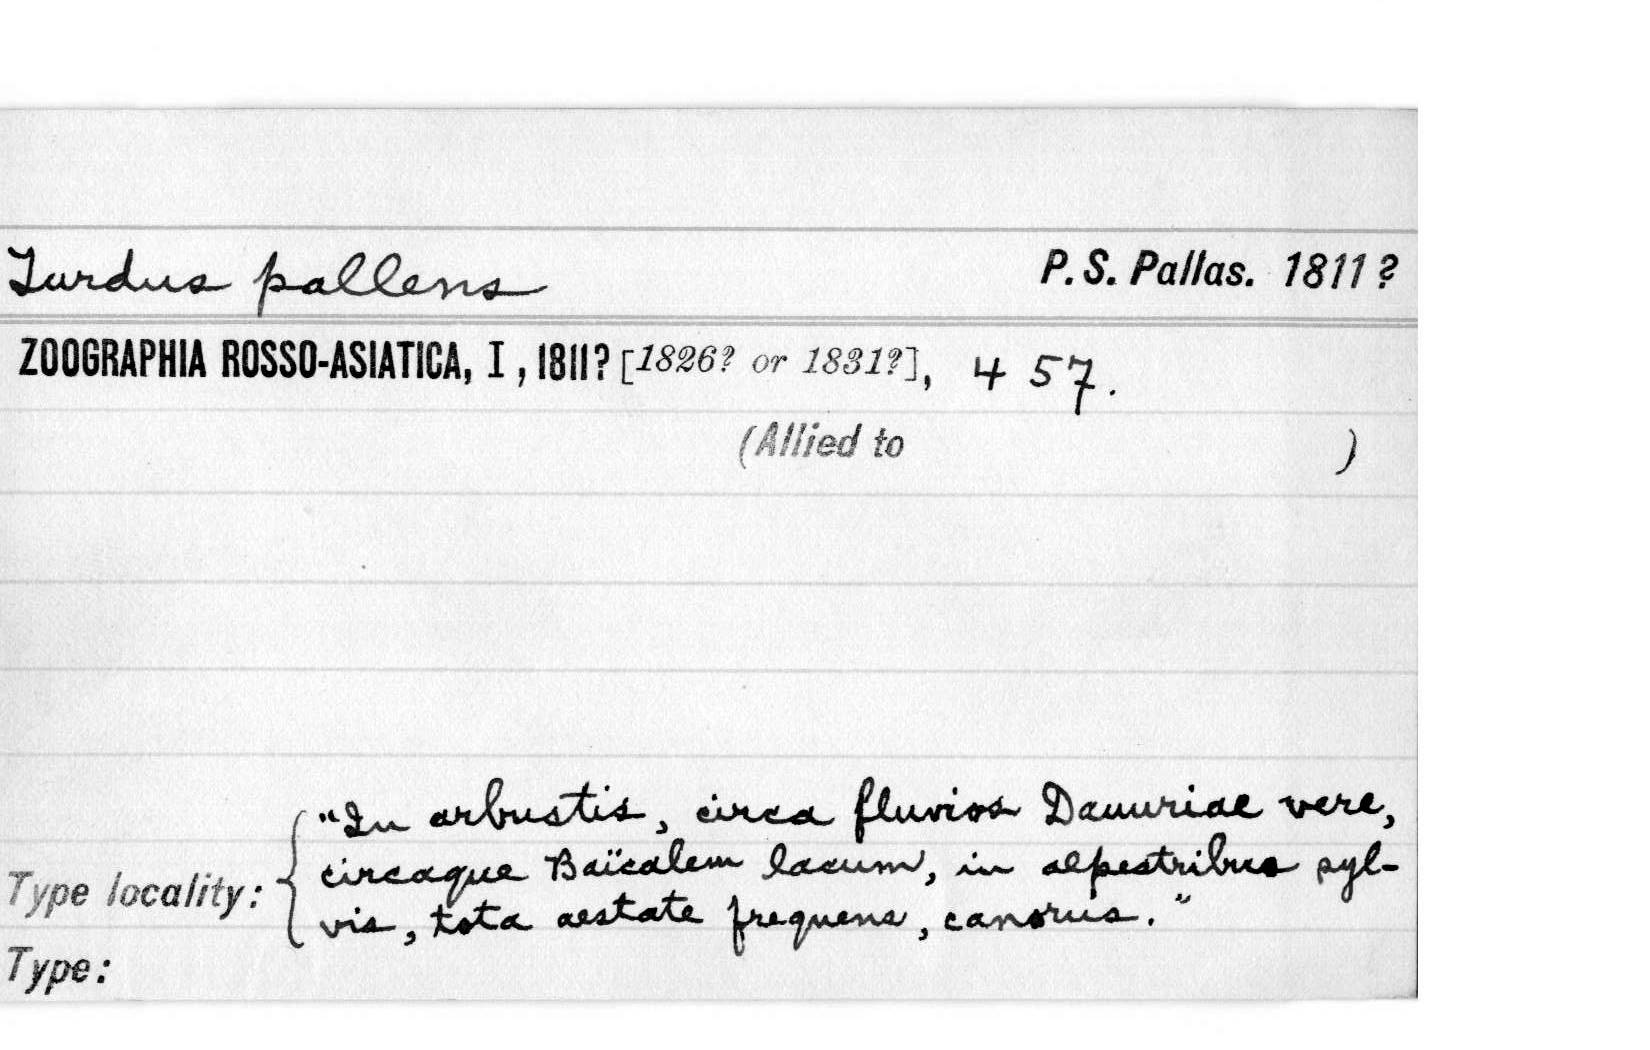 Turdus pallens P. S. Pallas. 1811?
ZOOGRAPHIA ROSSO-ASIATICA, I, 1811? [1826? or 1831?], 457.
(Allied to )
"In arbustis, circa fluvios Dauuriae vere,
circaque Baïcalem lacum, in alpestribus syl-
Type locality:
vis, tota aestate frequens, canorus."
Type: